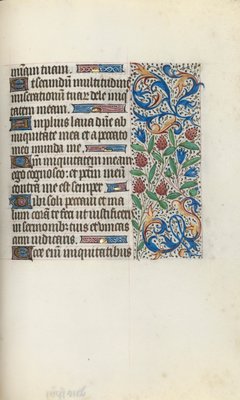 miam tuam.
Et secundum multitudinē
miserationū tuar̄ dele iniqui
tatem meam.
Amplius lava me ab
iniquitate mea et a peccato
meo munda me
Quoniam iniquitatem meam
ego cognosco: et petm̄ meū
contra me est semper
Tibi soli peccavi et ma
lum corā te feci ut iustificeris
in sermonib; tuis et vincas
cum iudicaris.
Ecce enī iniquitatibus